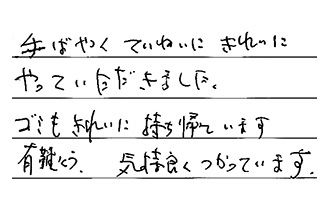 手ばやく ていねいに きれいに
やっていただきました。
ゴミもきれいに持ち帰ています
有難とう、 気持良くつかっています。